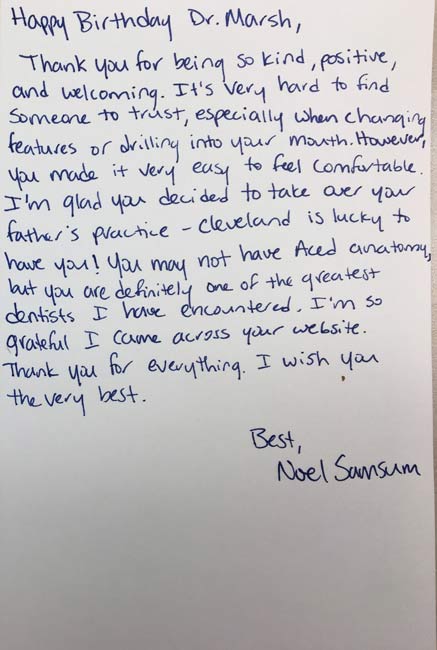 Happy Birthday Dr. Marsh,
Thank you for being so kind, positive,
and welcoming. It's very hard to find
someone to trust, especially when changing
features or drilling into your mouth. However,
you made it very easy to feel comfortable.
I'm glad you decided to take over your
father's practice - Cleveland is lucky to
have you! You may not have Aced anatomy,
but you are definitely one of the greatest
dentists I have encountered. I'm so
grateful I came across your website.
Thank you for everything. I wish you
the very best.
Best,
Noel Samsum